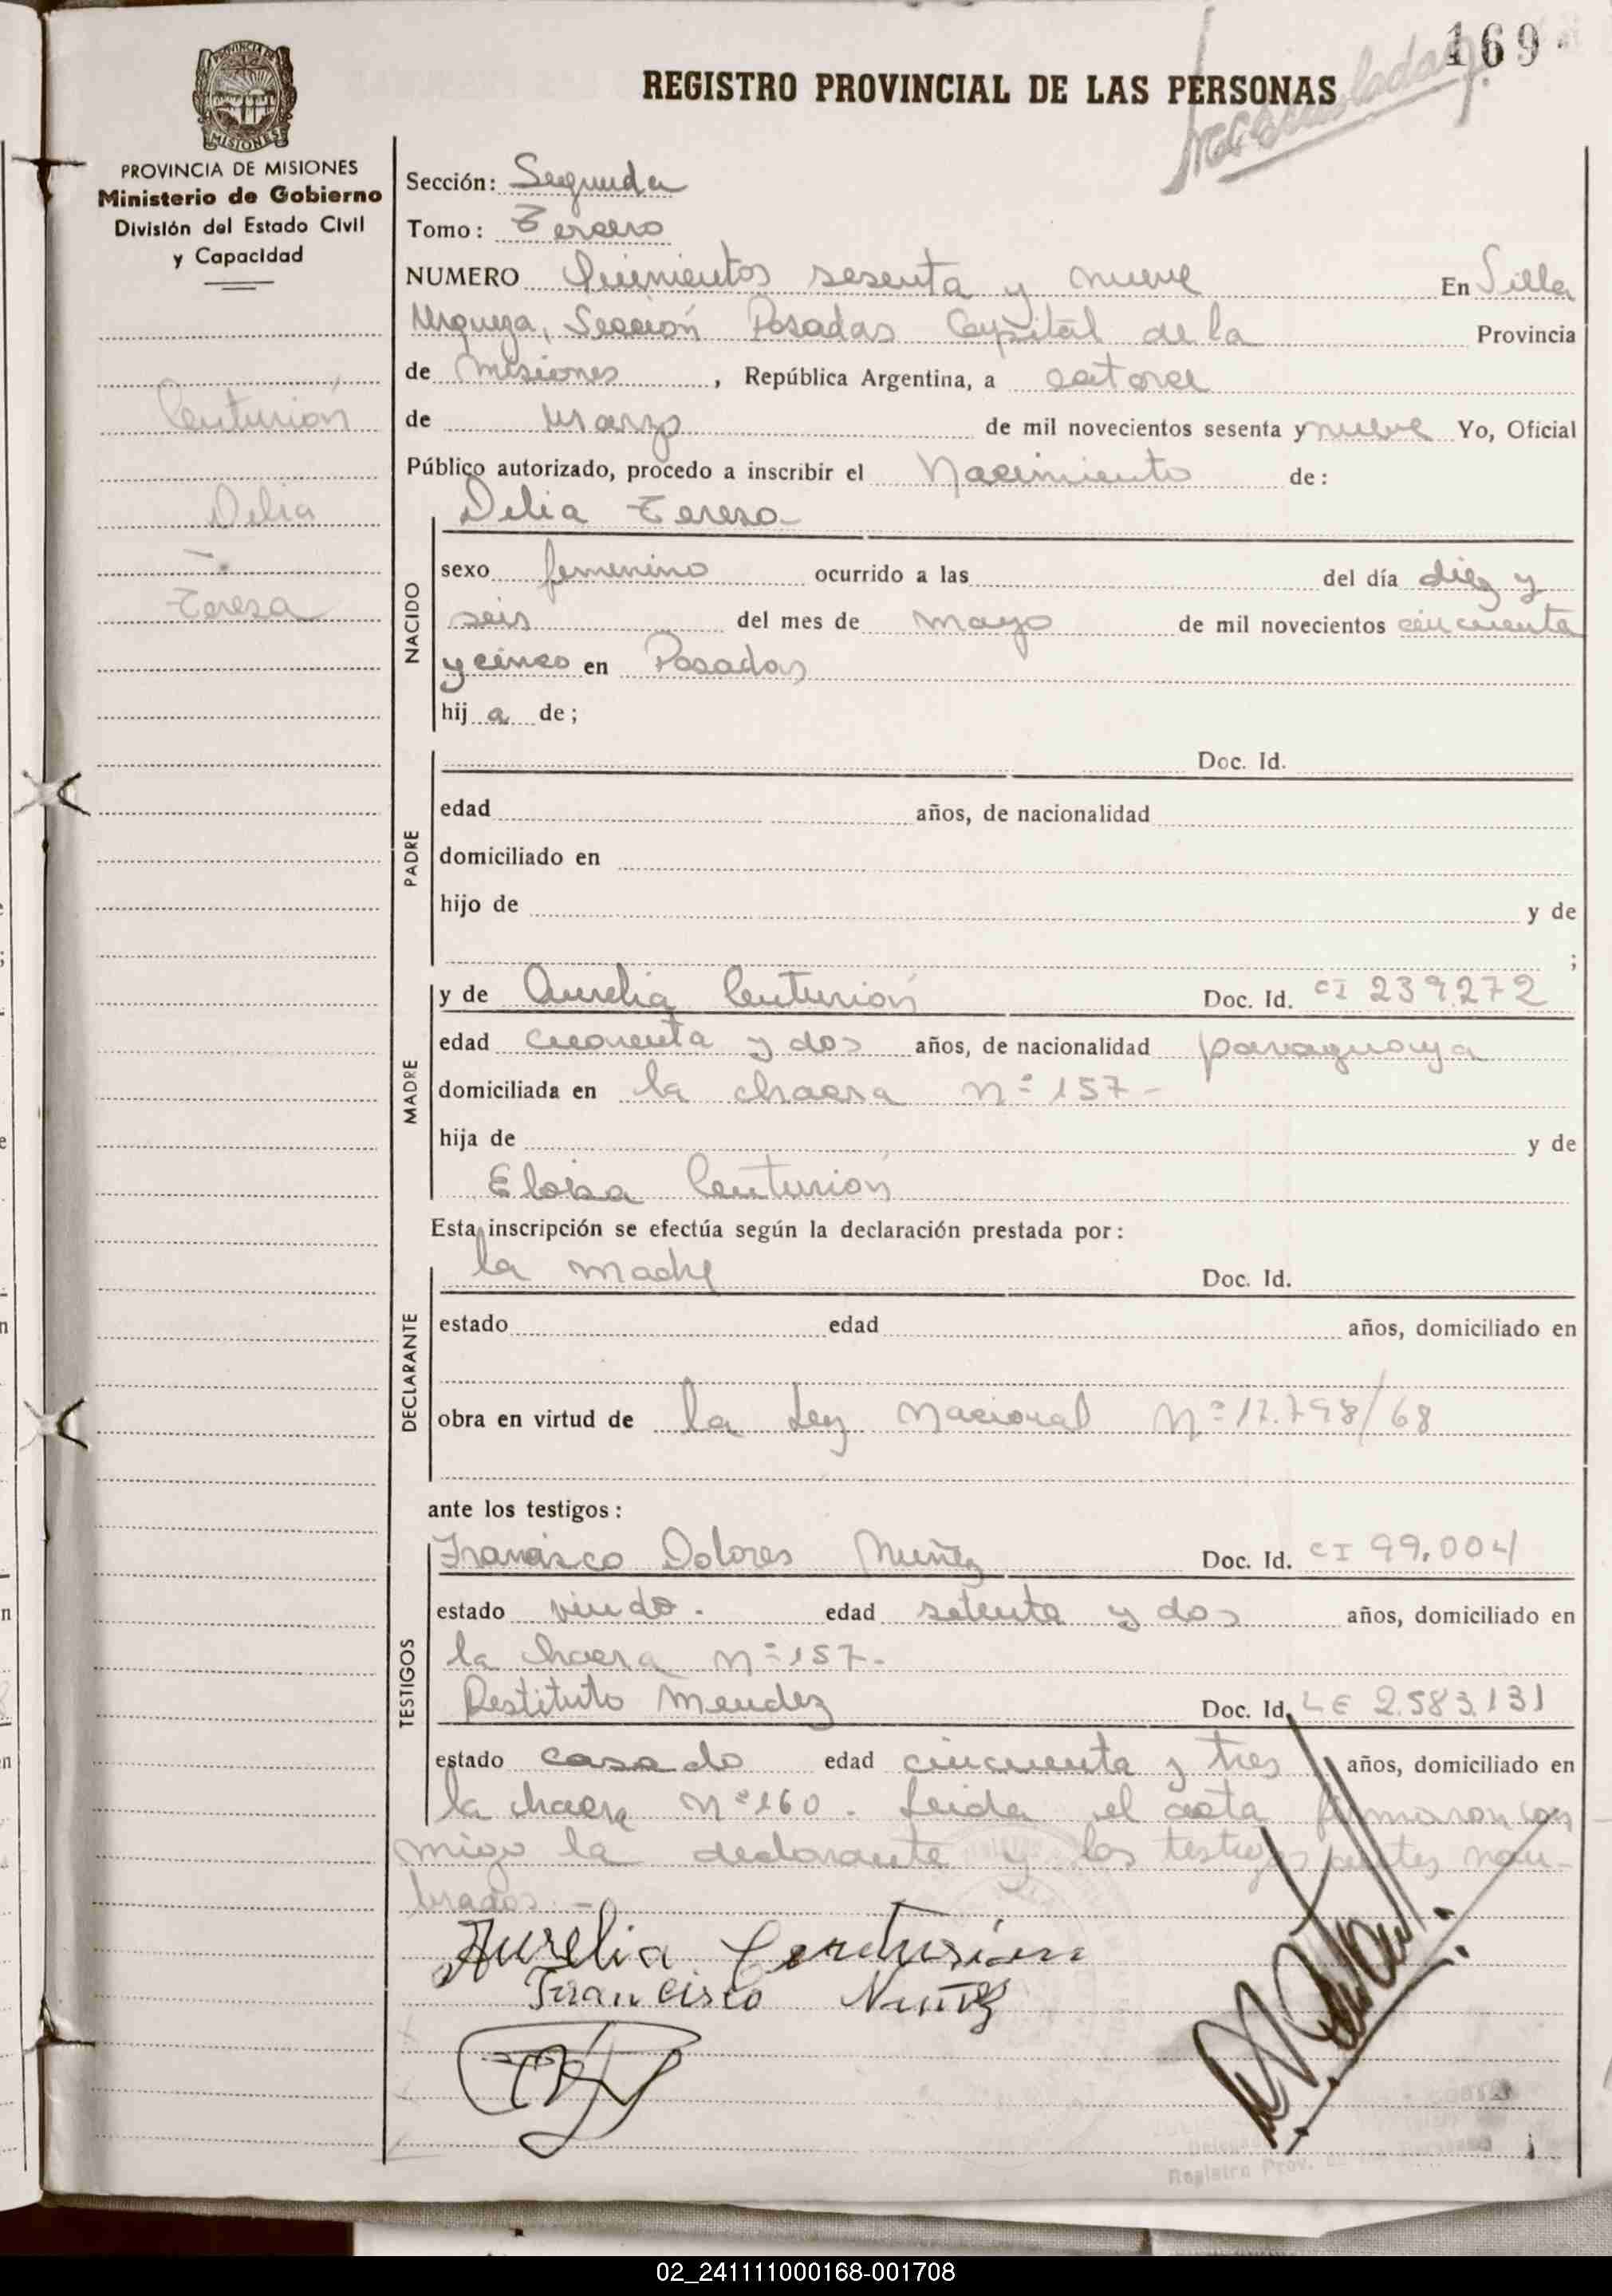 169
REGISTRO PROVINCIAL DE LAS PERSONAS
PROVINCIA DE MISIONES
MISIONES
PROVINCIA DE MISIONES
Ministerio de Gobierno
División del Estado Civil
y Capacidad
Centurión
Delia
Teresa
Sección: Segunda
Tomo: Tercero
NUMERO Quinientos sesenta y nueve En Villa
Urquiza, Sección Posadas Capital de la Provincia
de Misiones, República Argentina, a catorce
de Marzo de mil novecientos sesenta y nueve Yo, Oficial
Público autorizado, procedo a inscribir el Nacimiento de:
Delia Teresa
NACIDO
sexo femenino ocurrido a las del día diez y
seis del mes de mayo de mil novecientos cincuenta
y cinco en Posadas
hij a de;
PADRE
Doc. Id.
edad años, de nacionalidad
domiciliado en
hijo de y de
;
MADRE
y de Aurelia Centurión Doc. Id. CI 239.272
edad cuarenta y dos años, de nacionalidad paraguaya
domiciliada en la chacra Nº 157-
hija de y de
Eloisa Centurión
Esta inscripción se efectúa según la declaración prestada por:
DECLARANTE
la madre Doc. Id.
estado edad años, domiciliado en
obra en virtud de la Ley Nacional Nº 17.798/68
ante los testigos:
TESTIGOS
Francisco Dolores Nuñez Doc. Id. CI 99.004
estado viudo. edad setenta y dos años, domiciliado en
la chacra Nº 157-
Restituto Mendez Doc. Id. LE 2.583.131
estado casado edad cincuenta y tres años, domiciliado en
la chacra Nº 160. Leida el acta firmaron con
migo la declarante y los testigos antes nom-
brados.-
Aurelia Centurion
Francisco Nuñez
Registro Prov.
02_241111000168-001708